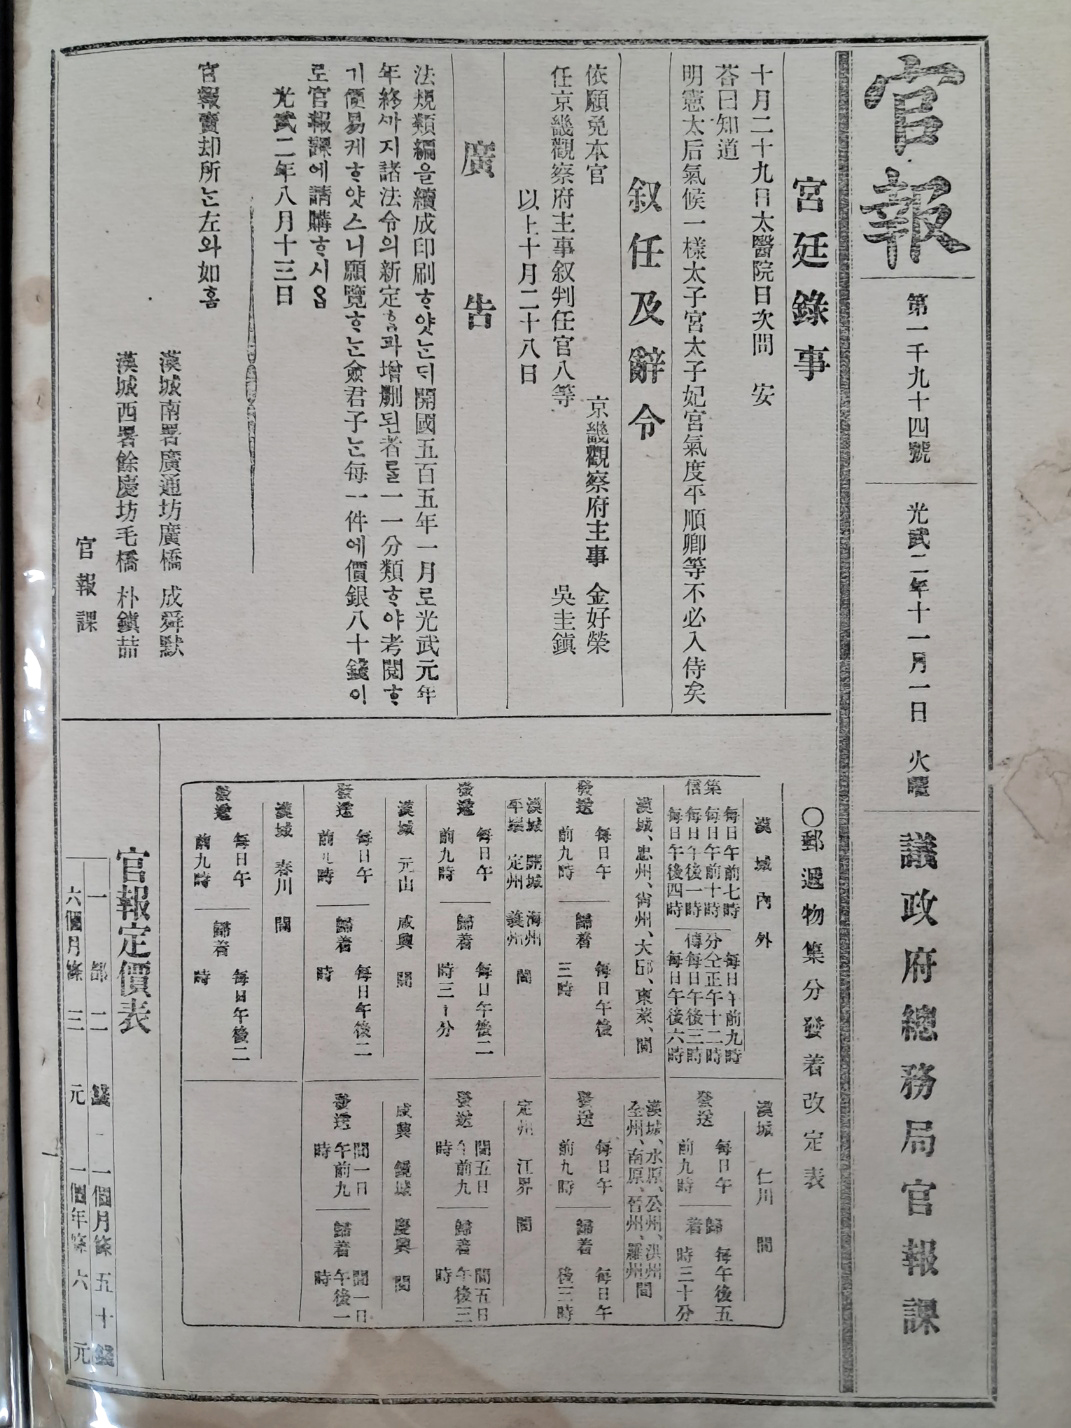 官報
第一千九十四號
光武二年十一月一日 火曜
議政府總務局官報課
宮廷錄事
十月二十九日太醫院日次問 安
荅曰知道
明憲太后氣候一樣太子宮太子妃宮氣度平順卿等不必入侍矣
叙任及辭令
依願免本官 京畿觀察府主事 金好榮
任京畿觀察府主事叙判任官八等 吳圭鎭
以上十月二十八日
廣告
法規類編을續成印刷ᄒᆞ얏ᄂᆞᆫᄃᆡ開國五百五年一月로光武元年
年終ᄭᆞ지諸法令의新定ᄒᆞᆷ과增刪된者ᄅᆞᆯ一一分類ᄒᆞ야考閱ᄒᆞ
기便易케ᄒᆞ얏스니願覽ᄒᆞᄂᆞᆫ僉君子ᄂᆞᆫ每一件에價銀八十錢이
로官報課에請購ᄒᆞ시ᄋᆞᆸ
光武二年八月十三日
官報賣却所ᄂᆞᆫ左와如ᄒᆞᆷ
漢城南署廣通坊廣橋 成舜默
漢城西署餘慶坊毛橋 朴鎭喆
官報課
○郵遞物集分發着改定表
漢城內外
集信
每日午前七時
每日午前十時
每日午後一時
每日午後四時
分傳
每日午前九時
仝正午十二時
每日午後三時
每日午後六時
漢城、忠州、尙州、大邱、東萊、間
發送 每日午前九時
歸着 每日午後三時
漢城 開城 海州
平壤 定州 義州 間
發送 每日午前九時
歸着 每日午後二時三十分
漢城 元山 咸興 間
發送 每日午前九時
歸着 每日午後二時
漢城 春川 間
發送 每日午前九時
歸着 每日午後二時
漢城 仁川 間
發送 每日午前九時
歸着 每午後五時三十分
漢城、水原、公州、洪州
全州、南原、晉州、羅州間
發送 每日午前九時
歸着 每日午後三時
定州 江界 間
發送 間五日午前九時
歸着 間五日午後三時
咸興 鏡城 慶興 間
發送 間一日午前九時
歸着 間一日午後一時
官報定價表
一部 二錢 一個月條 五十錢
六個月條 三元 一個年條 六元